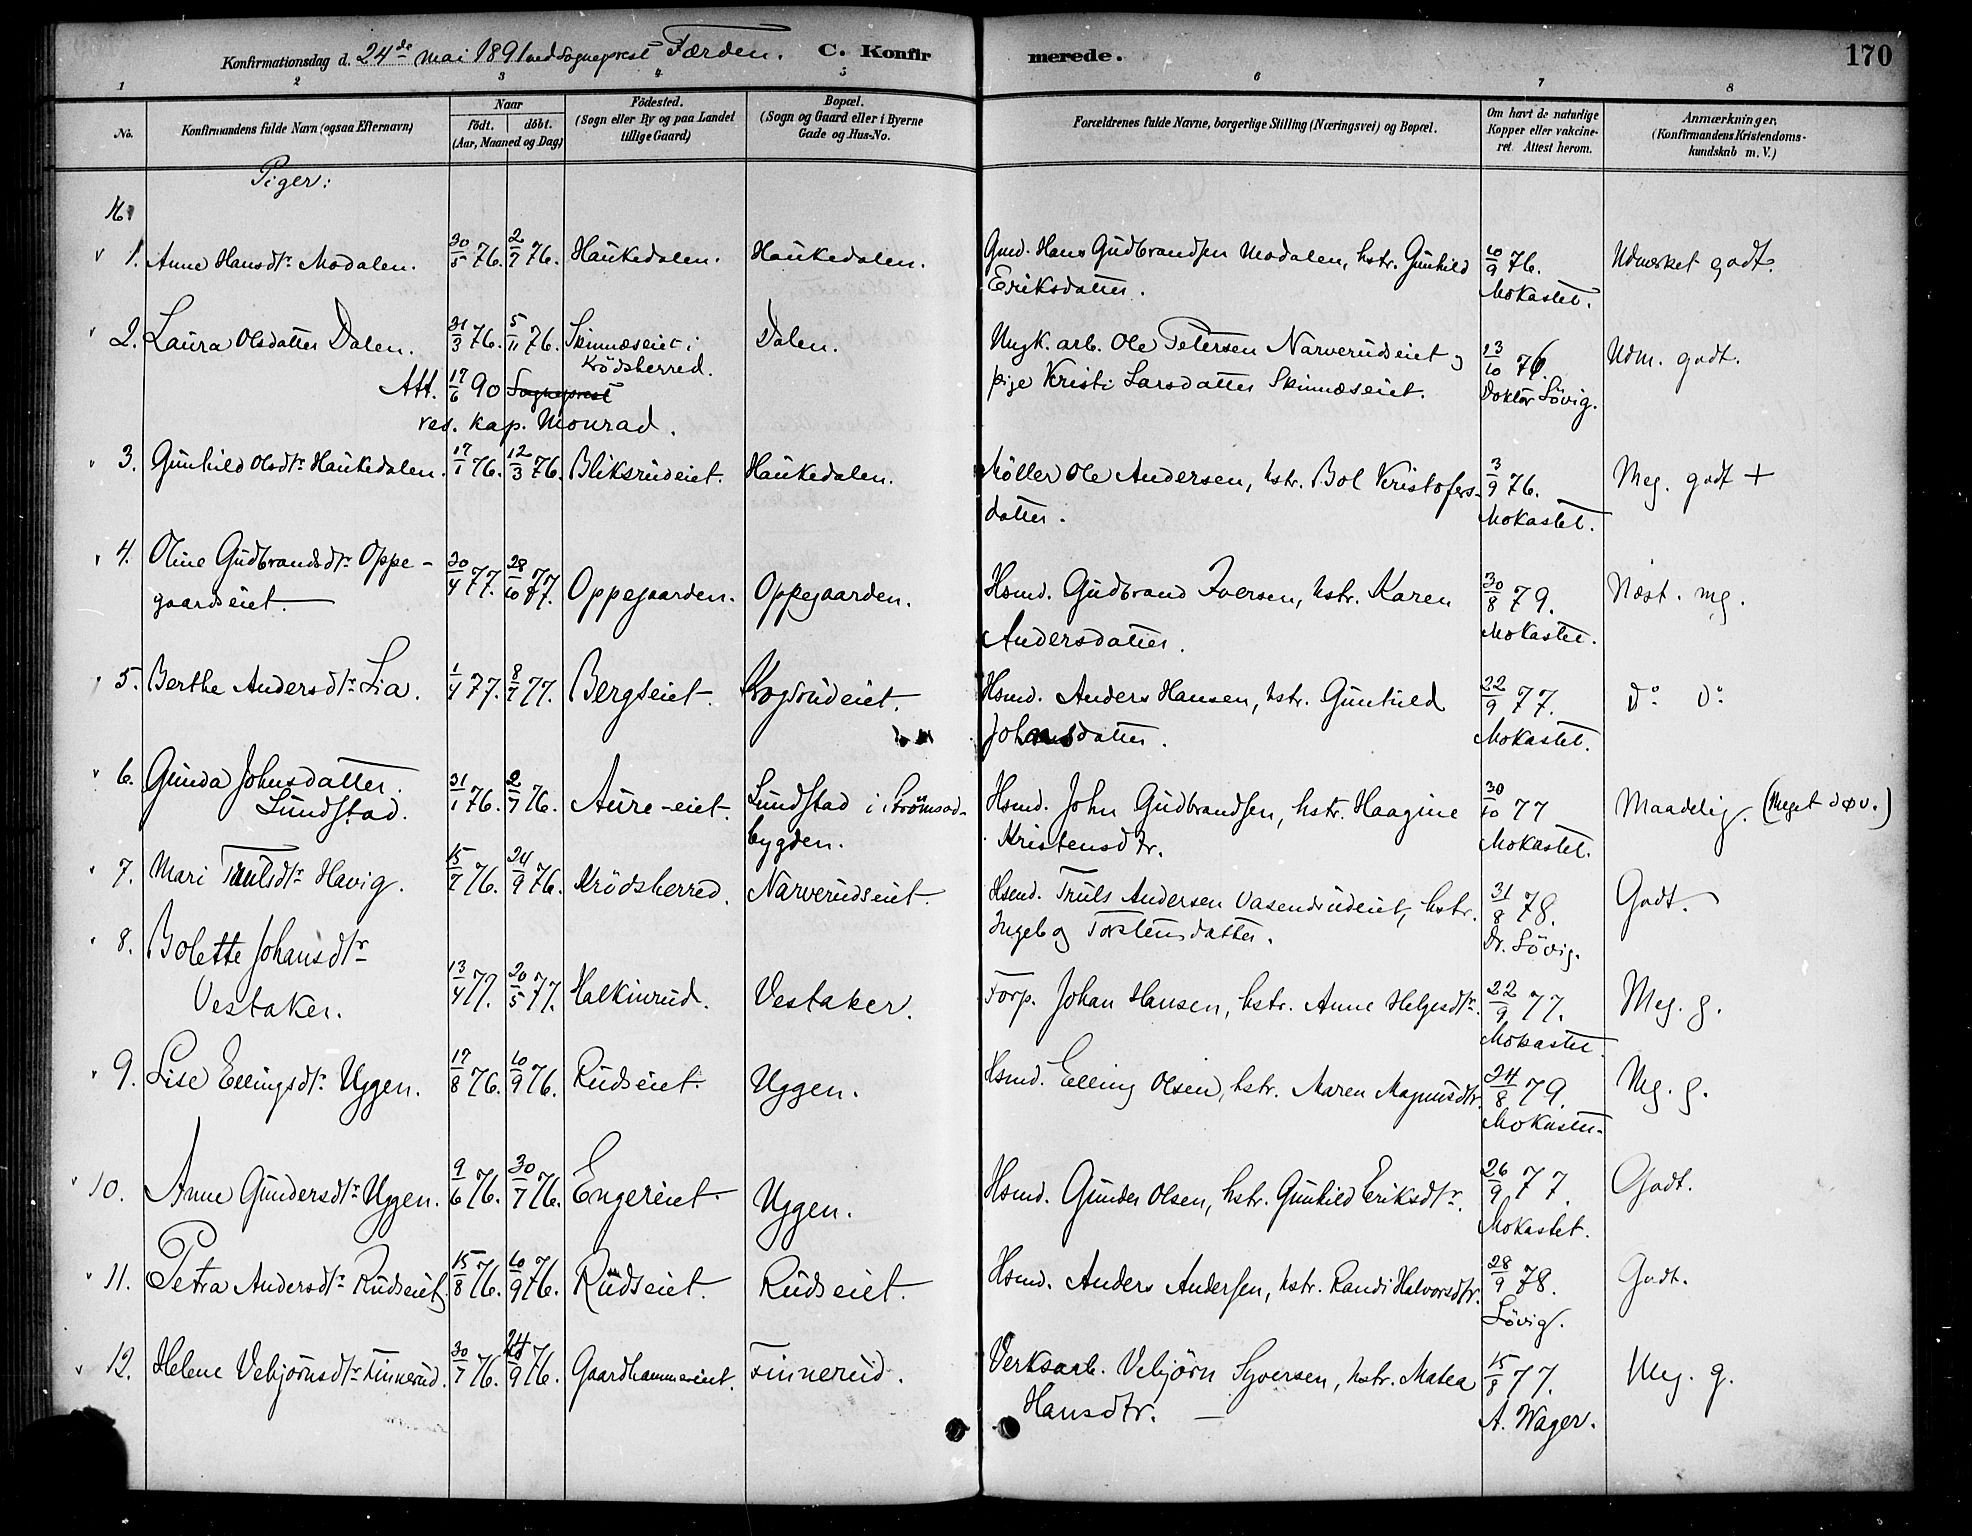 Konfirmationsdag d. 24de mai 1891 ved Sogneprest Færden. C. Konfir merede. 170
1 2 3 4 5 6 7 8
No. Konfirmandens fulde Navn (ogsaa Efternavn) Naar födt. döbt. (Aar, Maaned og Dag) Födested. (Sogn eller By og paa Landet tillige Gaard) Bopæl. (Sogn og Gaard eller i Byerne Gade og Hus-No. Forældrenes fulde Navne, borgerlige Stilling (Næringsvei) og Bopæl. Om havt de naturlige Kopper eller vakcineret. Attest herom. Anmærkninger, (Konfirmandens Kristendomskundskab m. V.)
Piger:
1. Anne Hansdtr Modalen. 30/5 76. 2/7 76. Haukedalen. Haukedalen. Gmd. Hans Gudbrandsen Modalen, hstr. Gunhild 10/9 76. Udmerket godt.
Eriksdatter. Mokastet.
2. Laura Olsdatter Dalen. 31/3 76. 5/11 76. Skinnæseiet i Dalen. Ungk. arb. Ole Petersen Narverudseiet og 13/10 76. Udm. godt.
Krödsherred. pige Kristi Larsdatter Skinnæseiet. Doktor Lövig.
Att. 17/6 90 Sogneprest
res. kap. Monrad.
3. Gunhild Olsdtr Haukedalen. 17/1 76. 12/3 76. Bliksrudeiet. Haukedalen. Möller Ole Andersen, hstr. Bol Kristofers- 3/9 76. Meg. godt +
datter. Mokastet.
4. Oline Gudbrandsdtr Oppe-
gaardseiet. 20/4 77. 28/10 77. Oppegaarden. Oppegaarden. Hsmd. Gudbrand Iversen, hstr. Karen 30/8 79. Næst. mg.
Andersdatter. Mokastet.
5. Berthe Andersdtr Lia. 1/4 77. 8/7 77. Bergseiet. Krogsrudeiet. Hsmd. Anders Hansen, hstr. Gunhild 22/9 77. do do
Johansdatter. Mokastet.
6. Gunda Johnsdatter. 31/1 76. 2/7 76. Aure-eiet. Lundstad i Strömsod- Hsmd. John Gudbrandsen, hstr. Haagine 30/10 77 Maadelig. (Meget døv.)
Lundstad. bygden. Kristensdtr. Mokastet.
7. Mari Trulsdtr Havig. 15/7 76. 24/9 76. Krödsherred. Narverudseiet. Hsmd. Truls Andersen Vasendrudeiet, hstr. 31/8 78. Godt.
Ingeb og Torstensdatter. Dr. Lövig.
8. Bolette Johansdtr
Vestaker. 13/4 77. 20/5 77. Halkinrud. Vestaker. Torp. Johan Hansen, hstr. Anne Helgesdtr. 22/9 77. Meg. g.
Mokastet.
9. Lise Ellingsdtr Uggen. 17/8 76. 10/9 76. Rudseiet. Uggen. Hsmd. Elling Olsen, hstr. Maren Magnusdtr. 24/8 79. Mg. g.
Mokastet.
10. Anne Gundersdtr Uggen. 9/6 76. 30/7 76. Engereiet. Uggen. Hsmd. Gunder Olsen, hstr. Gunhild Eriksdtr. 26/9 77. Godt.
Mokastet.
11. Petra Andersdtr Rudseiet. 15/8 76. 10/9 76. Rudseiet. Rudseiet. Hsmd. Anders Andersen, hstr. Randi Halvorsdtr. 28/9 78. Godt.
Lövig.
12. Helene Vebjörnsdtr Finnerud. 30/7 76. 24/9 76. Gaardhammereiet. Finnerud. Verksarb. Vebjörn Syversen, hstr. Matea 15/8 77. Meg. g.
Hansdtr. A. Wager.